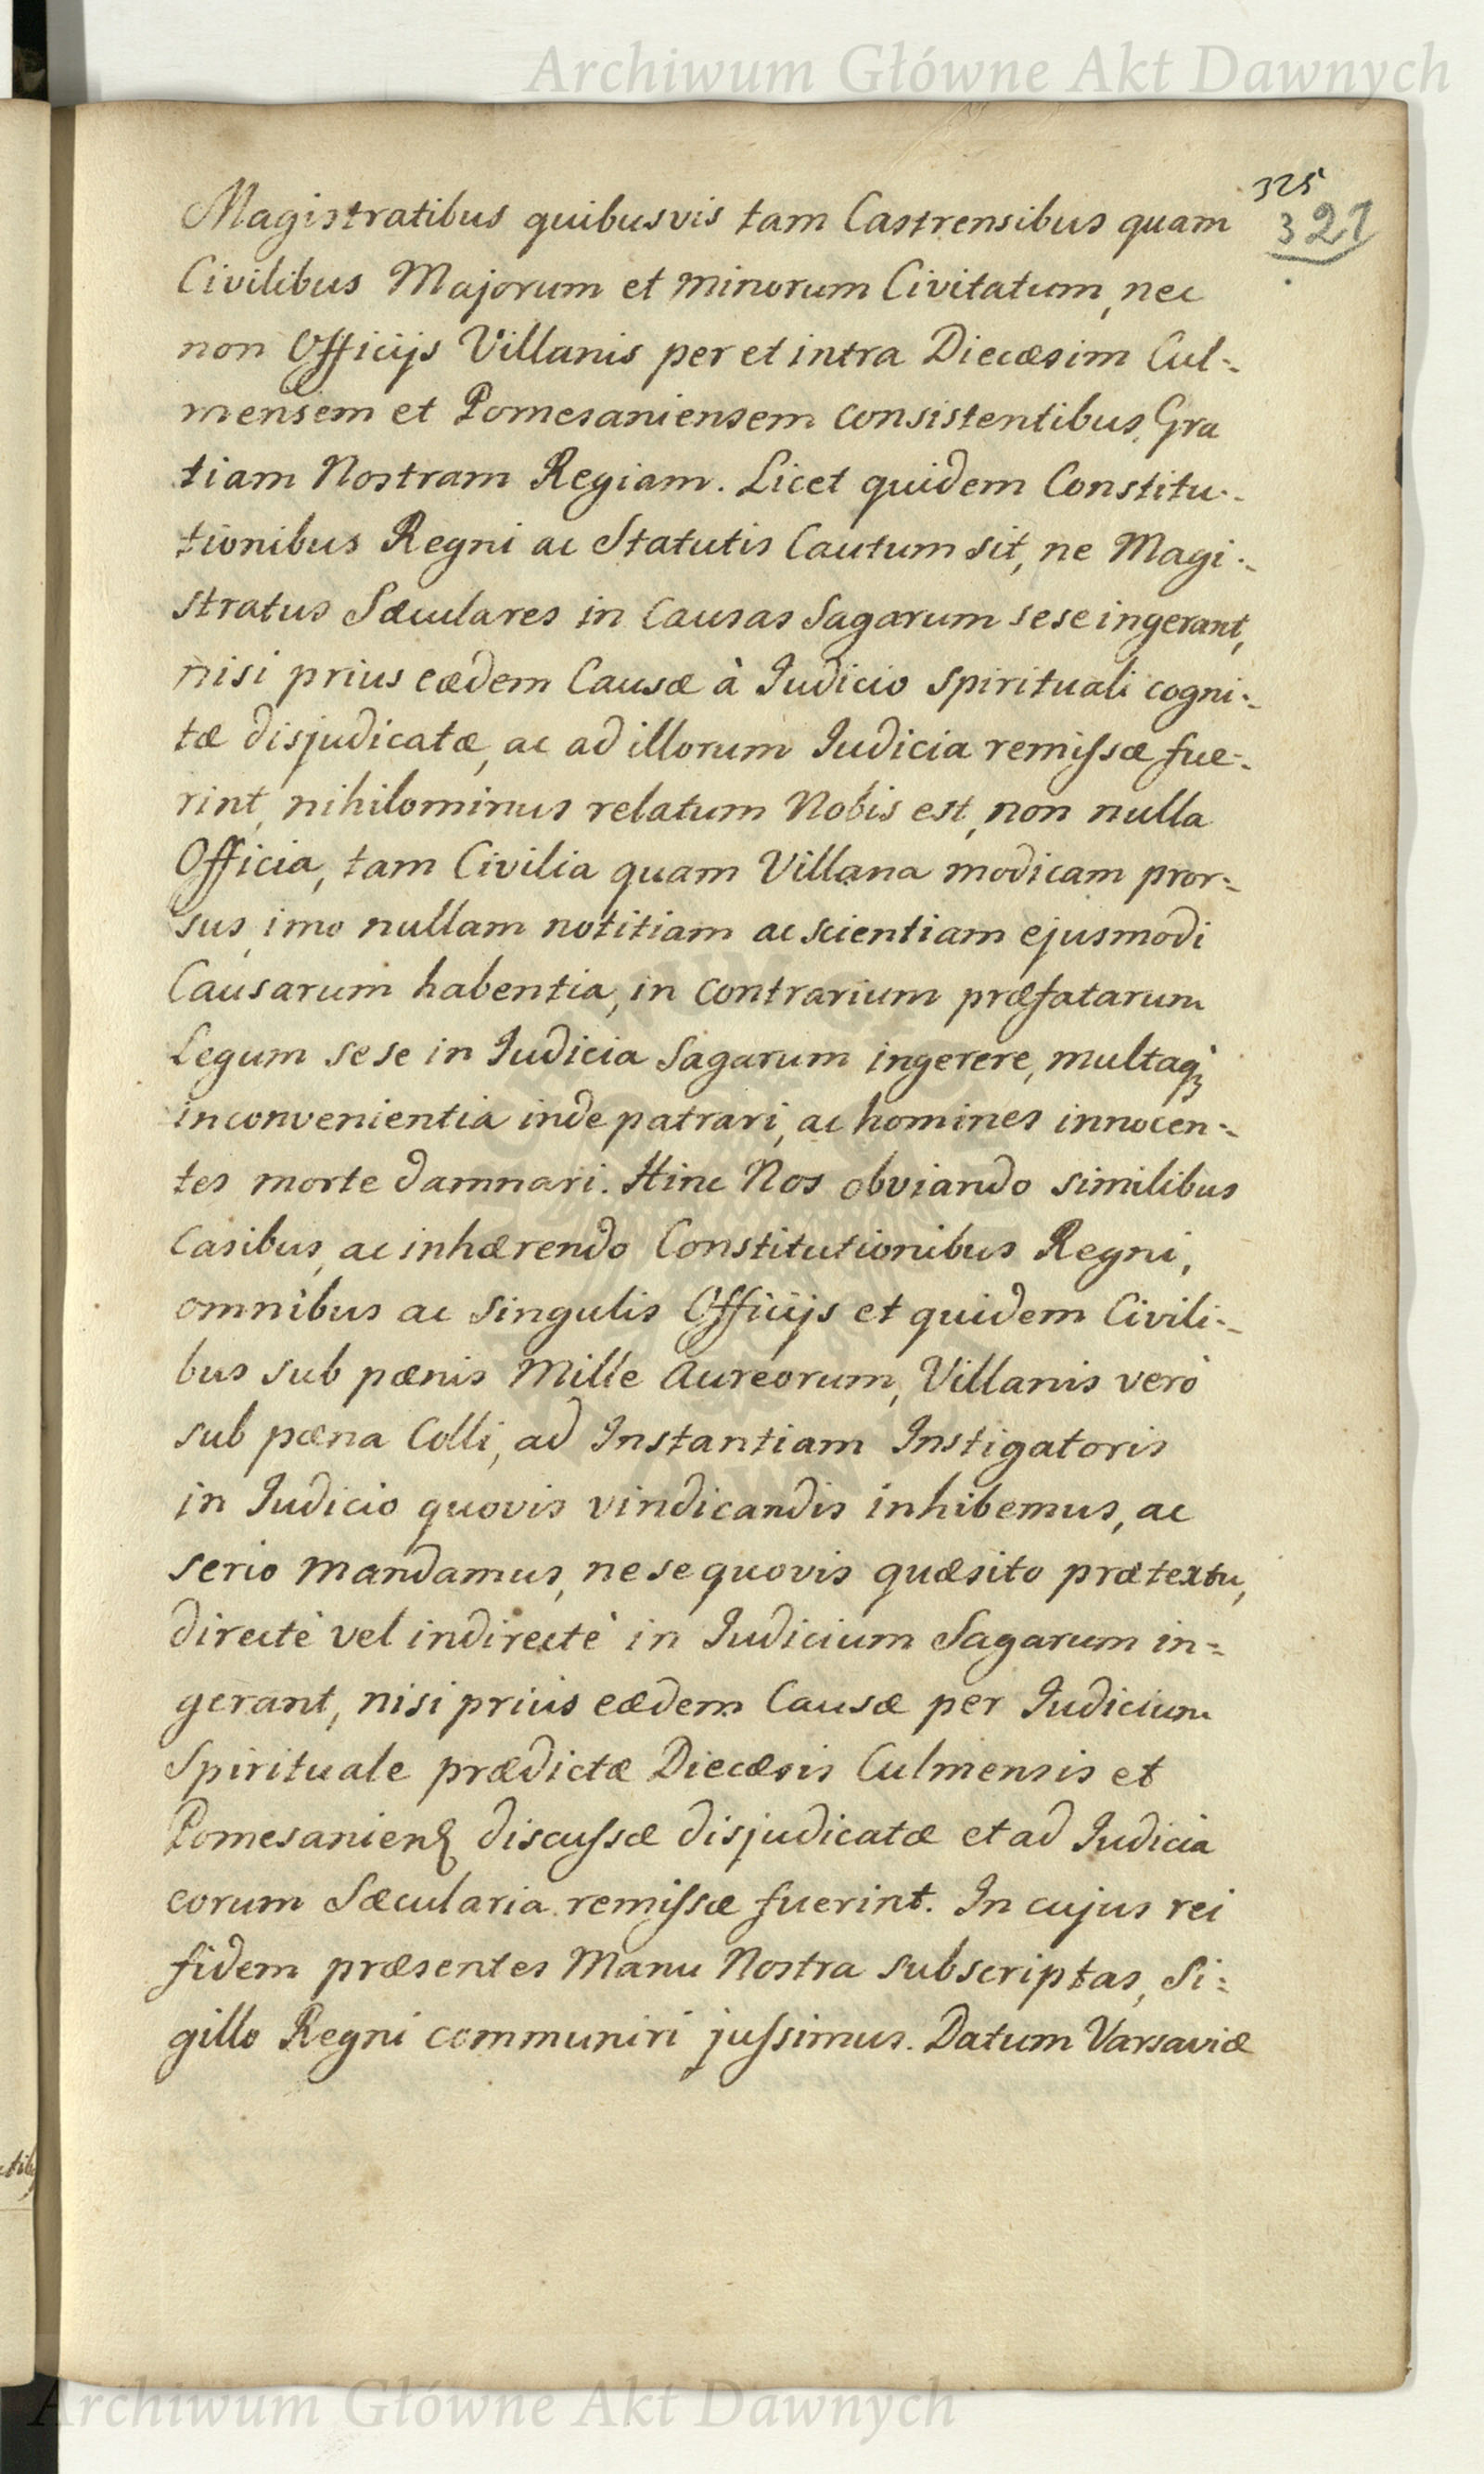 Archiwum Główne Akt Dawnych
325
321
Magistratibus quibusvis tam Castrensibus quam
Civilibus Majorum et minorum Civitatum, nec
non Officijs Villanis per et intra Diecæsim Cul-
mensem et Pomesaniensem consistentibus, Gra
tiam Nostram Regiam. Licet quidem Constitu-
tionibus Regni ac Statutis Cautum sit, ne Magi-
stratus Sæculares in Causas Sagarum sese ingerant,
nisi prius eædem Causæ à Iudicio Spirituali cogni-
tæ disjudicatæ, ac ad illorum Iudicia remiſsæ fue-
rint, nihilominus relatum Nobis est, non nulla
Officia, tam Civilia quam Villana modicam pror-
sus, imo nullam notitiam ac scientiam ejusmodi
Causarum habentia, in contrarium præfatarum
Legum sese in Iudicia Sagarum ingerere, multaqꝫ
inconvenientia inde patrari, ac homines innocen-
tes morte damnari. Hinc Nos obviando similibus
Casibus, ac inhærendo Constitutionibus Regni,
omnibus ac Singulis Officijs et quidem Civili-
bus sub pænis Mille Aureorum, Villanis verò
sub pæna Colli, ad Instantiam Instigatoris
in Iudicio quovis vindicandis inhibemus, ac
serio mandamus, ne se quovis quæsito prætextu,
directè vel indirectè in Iudicium Sagarum in=
gerant, nisi priùs eædem Causæ per Iudicium
Spirituale prædictæ Diecæsis Culmensis et
Pomesanienꝭ discuſsæ disjudicatæ et ad Iudicia
eorum Sæcularia remiſsæ fuerint. In cujus rei
fidem præsentes Manu Nostra subscriptas, Si=
gillo Regni communiri juſsimus. Datum Varsaviæ
Archiwum Główne Akt Dawnych